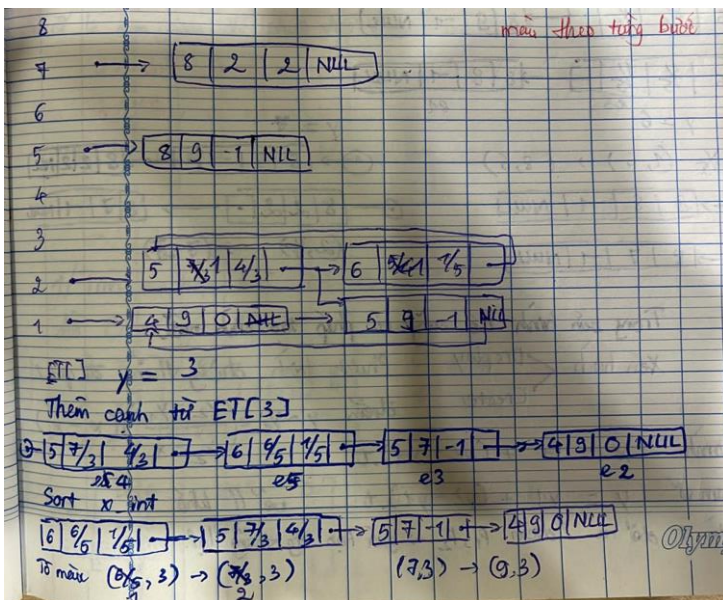 8
màu theo từng bước
7 → 8 | 2 | 2 | NULL
6
5 → 8 | 9 | -1 | NULL
4
3
2 → 5 | 1 | 4/3 → 6 | 1 | 1/5
1 → 4 | 9 | 0 | NULL → 5 | 9 | -1 | NULL
ET[] y = 3
Thêm cạnh từ ET[3]
5 | 7/3 | 4/3 → 6 | 6/5 | 1/5 → 5 | 7 | -1 → 4 | 9 | 0 | NULL
e4 e5 e3 e2
Sort x_int
6 | 6/5 | 1/5 → 5 | 7/3 | 4/3 → 5 | 7 | -1 → 4 | 9 | 0 | NULL
Tô màu (6/5, 3) → (7/3, 3) (7,3) → (9,3)
1 2